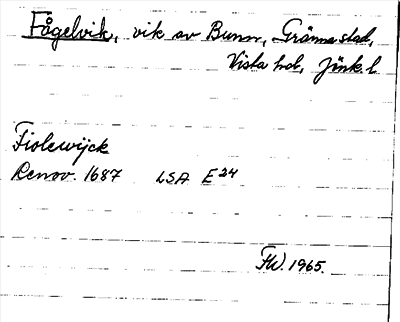 Fågelvik, vik av Bunn, Gränna stad,
Vista hd, Jönk. l.
Fiolewijck
Renov. 1687 LSA E24
FW. 1965.